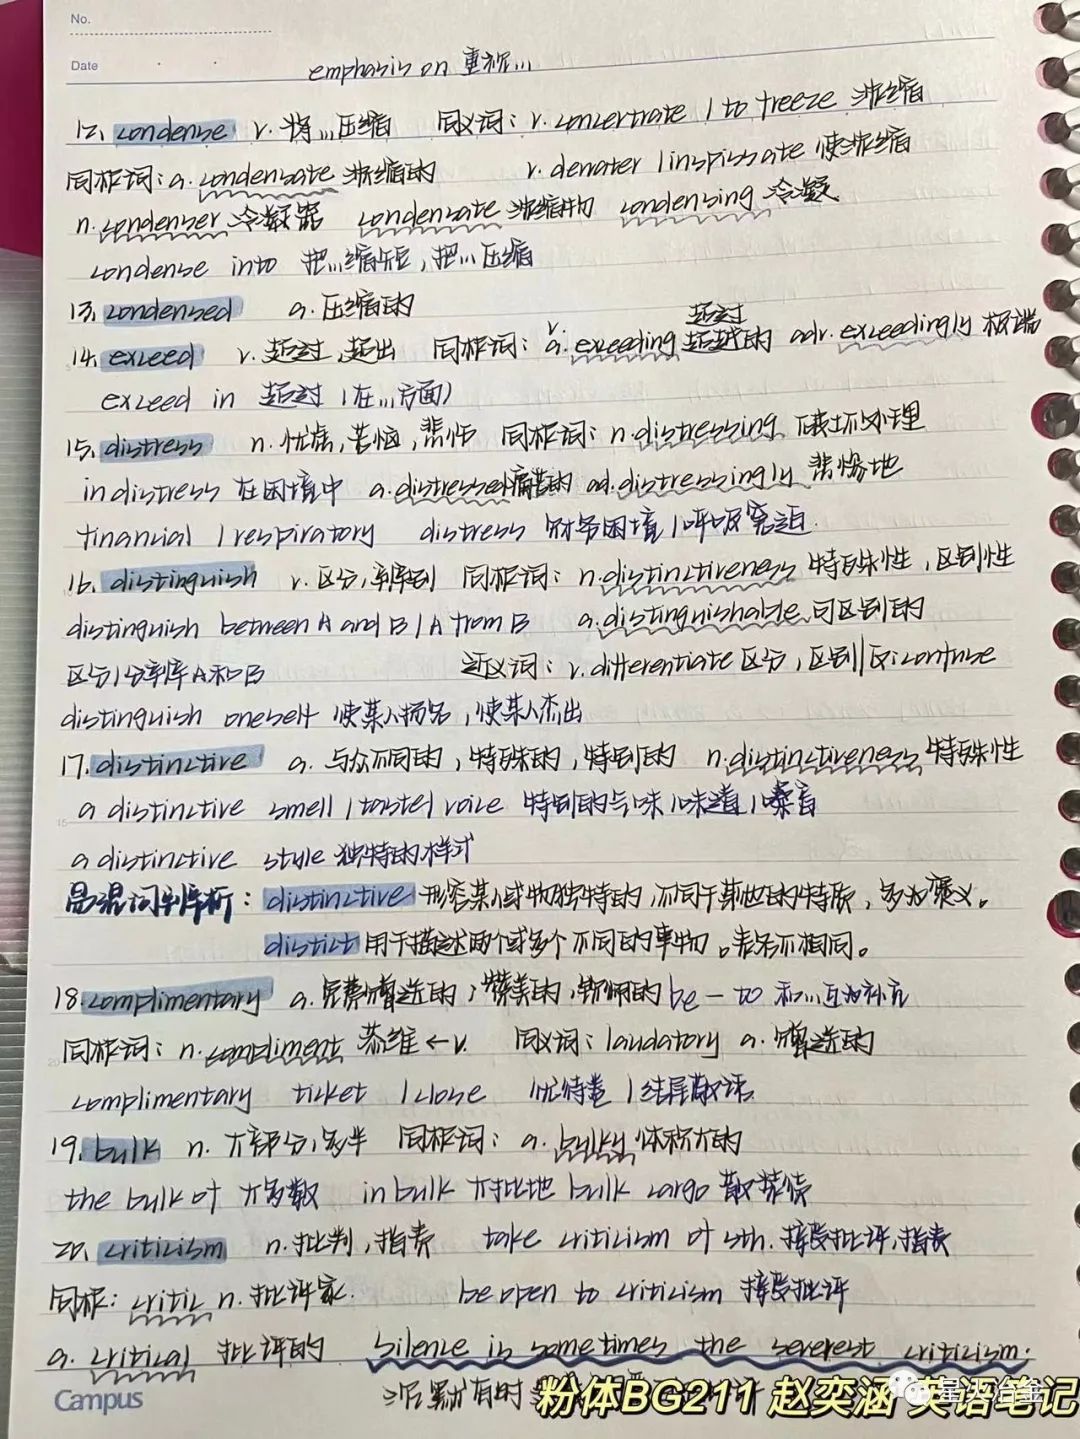 No.
Date
emphasis on 重视...
12. condense v. 将...压缩 同义词: v. concertrate / to freeze 浓缩
同根词: a. condensate 浓缩的 v. demater / inspissate 使浓缩
n. condenser 冷凝器 condensate 浓缩物 condensing 冷凝
condense into 把...缩短, 把...压缩
13. condensed a. 压缩的
14. exceed v. 超过, 超出 同根词: a. exceeding 超越的 v. 超过 adv. exceedingly 极端
exceed in 超过 (在...方面)
15. distress n. 忧虑, 苦恼, 悲伤 同根词: n. distressing 破坏处理
in distress 在困境中 a. distressed 痛苦的 ad. distressingly 悲惨地
financial / respiratory distress 财务困境 / 呼吸窘迫.
16. distinguish v. 区分, 辨别 同根词: n. distinctiveness 特殊性, 区别性
distinguish between A and B / A from B a. distinguishable 可区别的
区分/分辨A和B 近义词: v. differentiate 区分, 区别 反: confuse
distinguish oneself 使某人扬名, 使某人杰出
17. distinctive a. 与众不同的, 特殊的, 特别的 n. distinctiveness 特殊性
a distinctive smell / taste / voice 特别的气味 / 味道 / 嗓音
a distinctive style 独特的样式
易混词辨析: distinctive 形容某人或物独特的, 不同于其他的特质, 多为褒义。
distict 用于描述两个或多个不同的事物。表示不相同。
18. complimentary a. 免费赠送的, 赞美的, 恭维的 be — to 和...互为补充
同根词: n. compliment 恭维 ← v. 同义词: laudatory a. 赠送的
complimentary ticket / close 优待卷 / 结尾敬语
19. bulk n. 大部分, 多半 同根词: a. bulky 体积大的
the bulk of 大多数 in bulk 大批地 bulk cargo 散装货
20. criticism n. 批判, 指责 take criticism of sth. 接受批评, 指责
同根: critic n. 批评家. be open to criticism 接受批评
a. critical 批评的 Silence is sometimes the severest criticism.
沉默有时
Campus
粉体BG211 赵奕涵 英语笔记
星火冶金